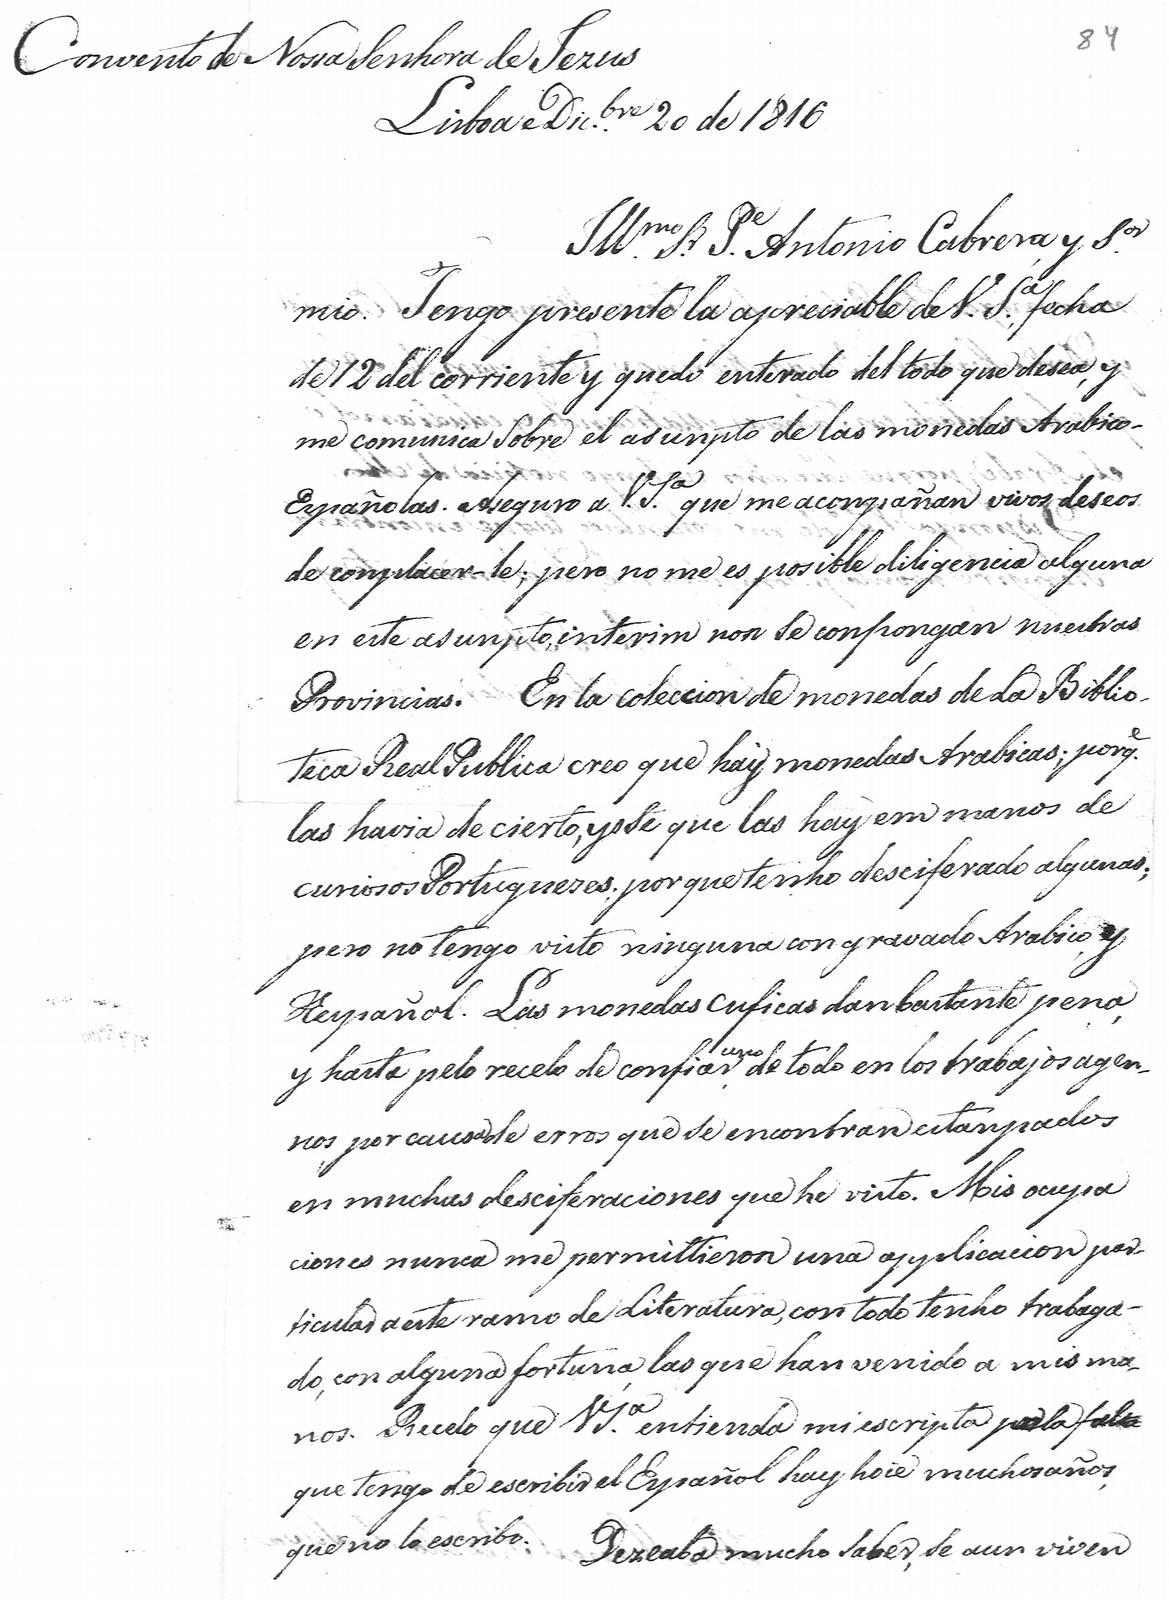 84
Convento de Nossa Senhora de Jezus
Lisboa e Dic.bre 20 de 1816
Ill.mo S.r P.e Antonio Cabrera, y S.or
mio. Tengo presente la apreciable de V. S.a fecha
de 12 del corriente y quedo enterado del todo que desea, y
me comunica sobre el asunpto de las monedas Arabico-
Españolas. Aseguro a V.S.a que me aconpañan vivos deseos
de conplacer-le; pero no me es posible diligencia alguna
en este asunpto, interim non se conpongan nuestras
Provincias. En la coleccion de monedas de la Biblio-
teca Real Publica creo que hay monedas Arabicas; porq.e
las havia de cierto, y sé que las hay em manos de
curiosos Portuguezes; porque tenho desciferado algunas;
pero no tengo visto ninguna con gravado Arabico, y
Hespañol. Las monedas Cuficas dan bastante pena,
y hasta pelo recelo de confiar uno de todo en los trabajos agen-
nos por causa de erros que se encontran estanpados
en muchas desciferaciones que he visto. Mis ocupa
ciones nunca me permittieron una applicacion par-
ticular a este ramo de Literatura, con todo tenho trabaga-
do, con alguna fortuna, las que han venido a mis ma-
nos. Recelo que V.S.a entienda mi escripta pela falta
que tengo de escribir el Español hay hoie muchos años,
que no lo escribo. Dezeaba mucho saber, se aun viven